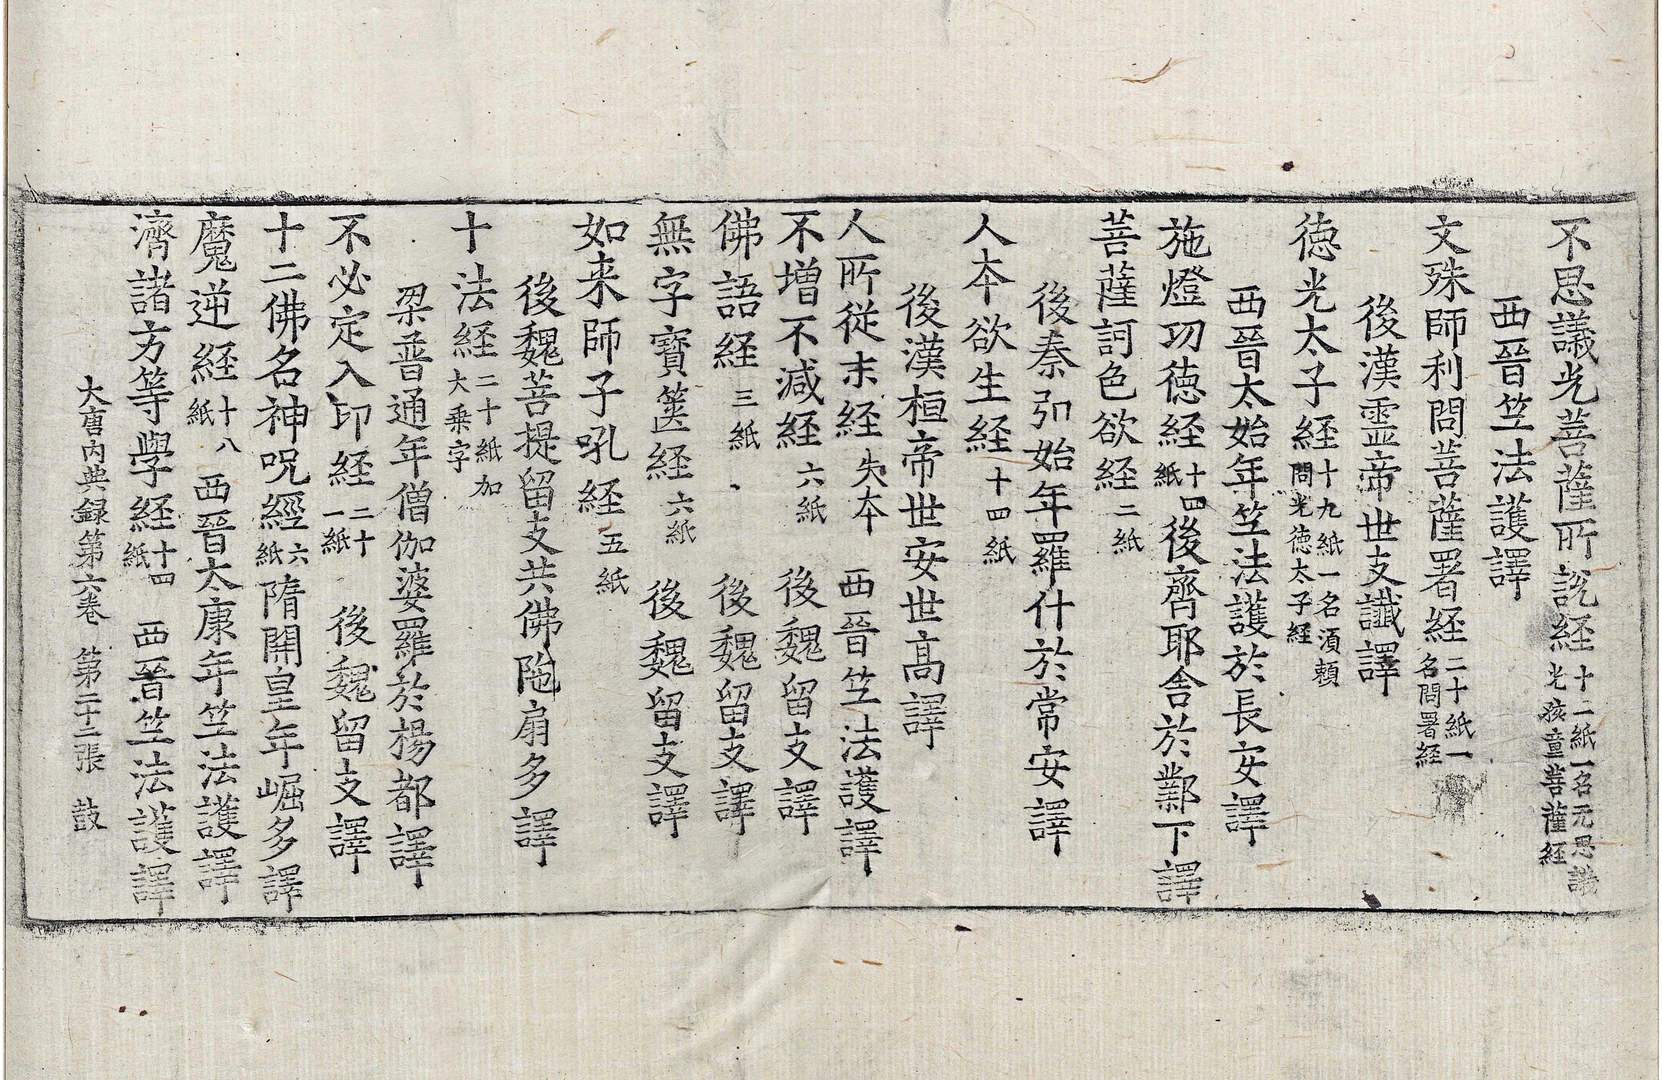 不思議光菩薩所說経十二紙一名无思議光孩童菩薩経
西晉竺法護譯
文殊師利問菩薩署経二十紙一名問署経
後漢靈帝世支讖譯
徳光太子経十九紙一名湏頼問光徳太子経
西晉太始年竺法護於長安譯
施燈功徳経十四紙後齊耶舍於鄴下譯
菩薩訶色欲経二紙
後秦弘始年羅什於常安譯
人夲欲生経十四紙
後漢桓帝世安世髙譯
人所從来経失夲 西晉竺法護譯
不増不減経六紙 後魏留支譯
佛語経三紙 後魏留支譯
無字寶篋経六紙 後魏留支譯
如来師子吼経五紙
後魏菩提留支共佛陁扇多譯
十法経二十紙加大乗字
梁普通年僧伽婆羅於楊都譯
不必定入印経二十一紙 後魏留支譯
十二佛名神呪經六紙隋開皇年崛多譯
魔逆経十八紙 西晉太康年竺法護譯
濟諸方等學経十四紙 西晉竺法護譯
大唐内典録第六卷 第二十三張 鼓